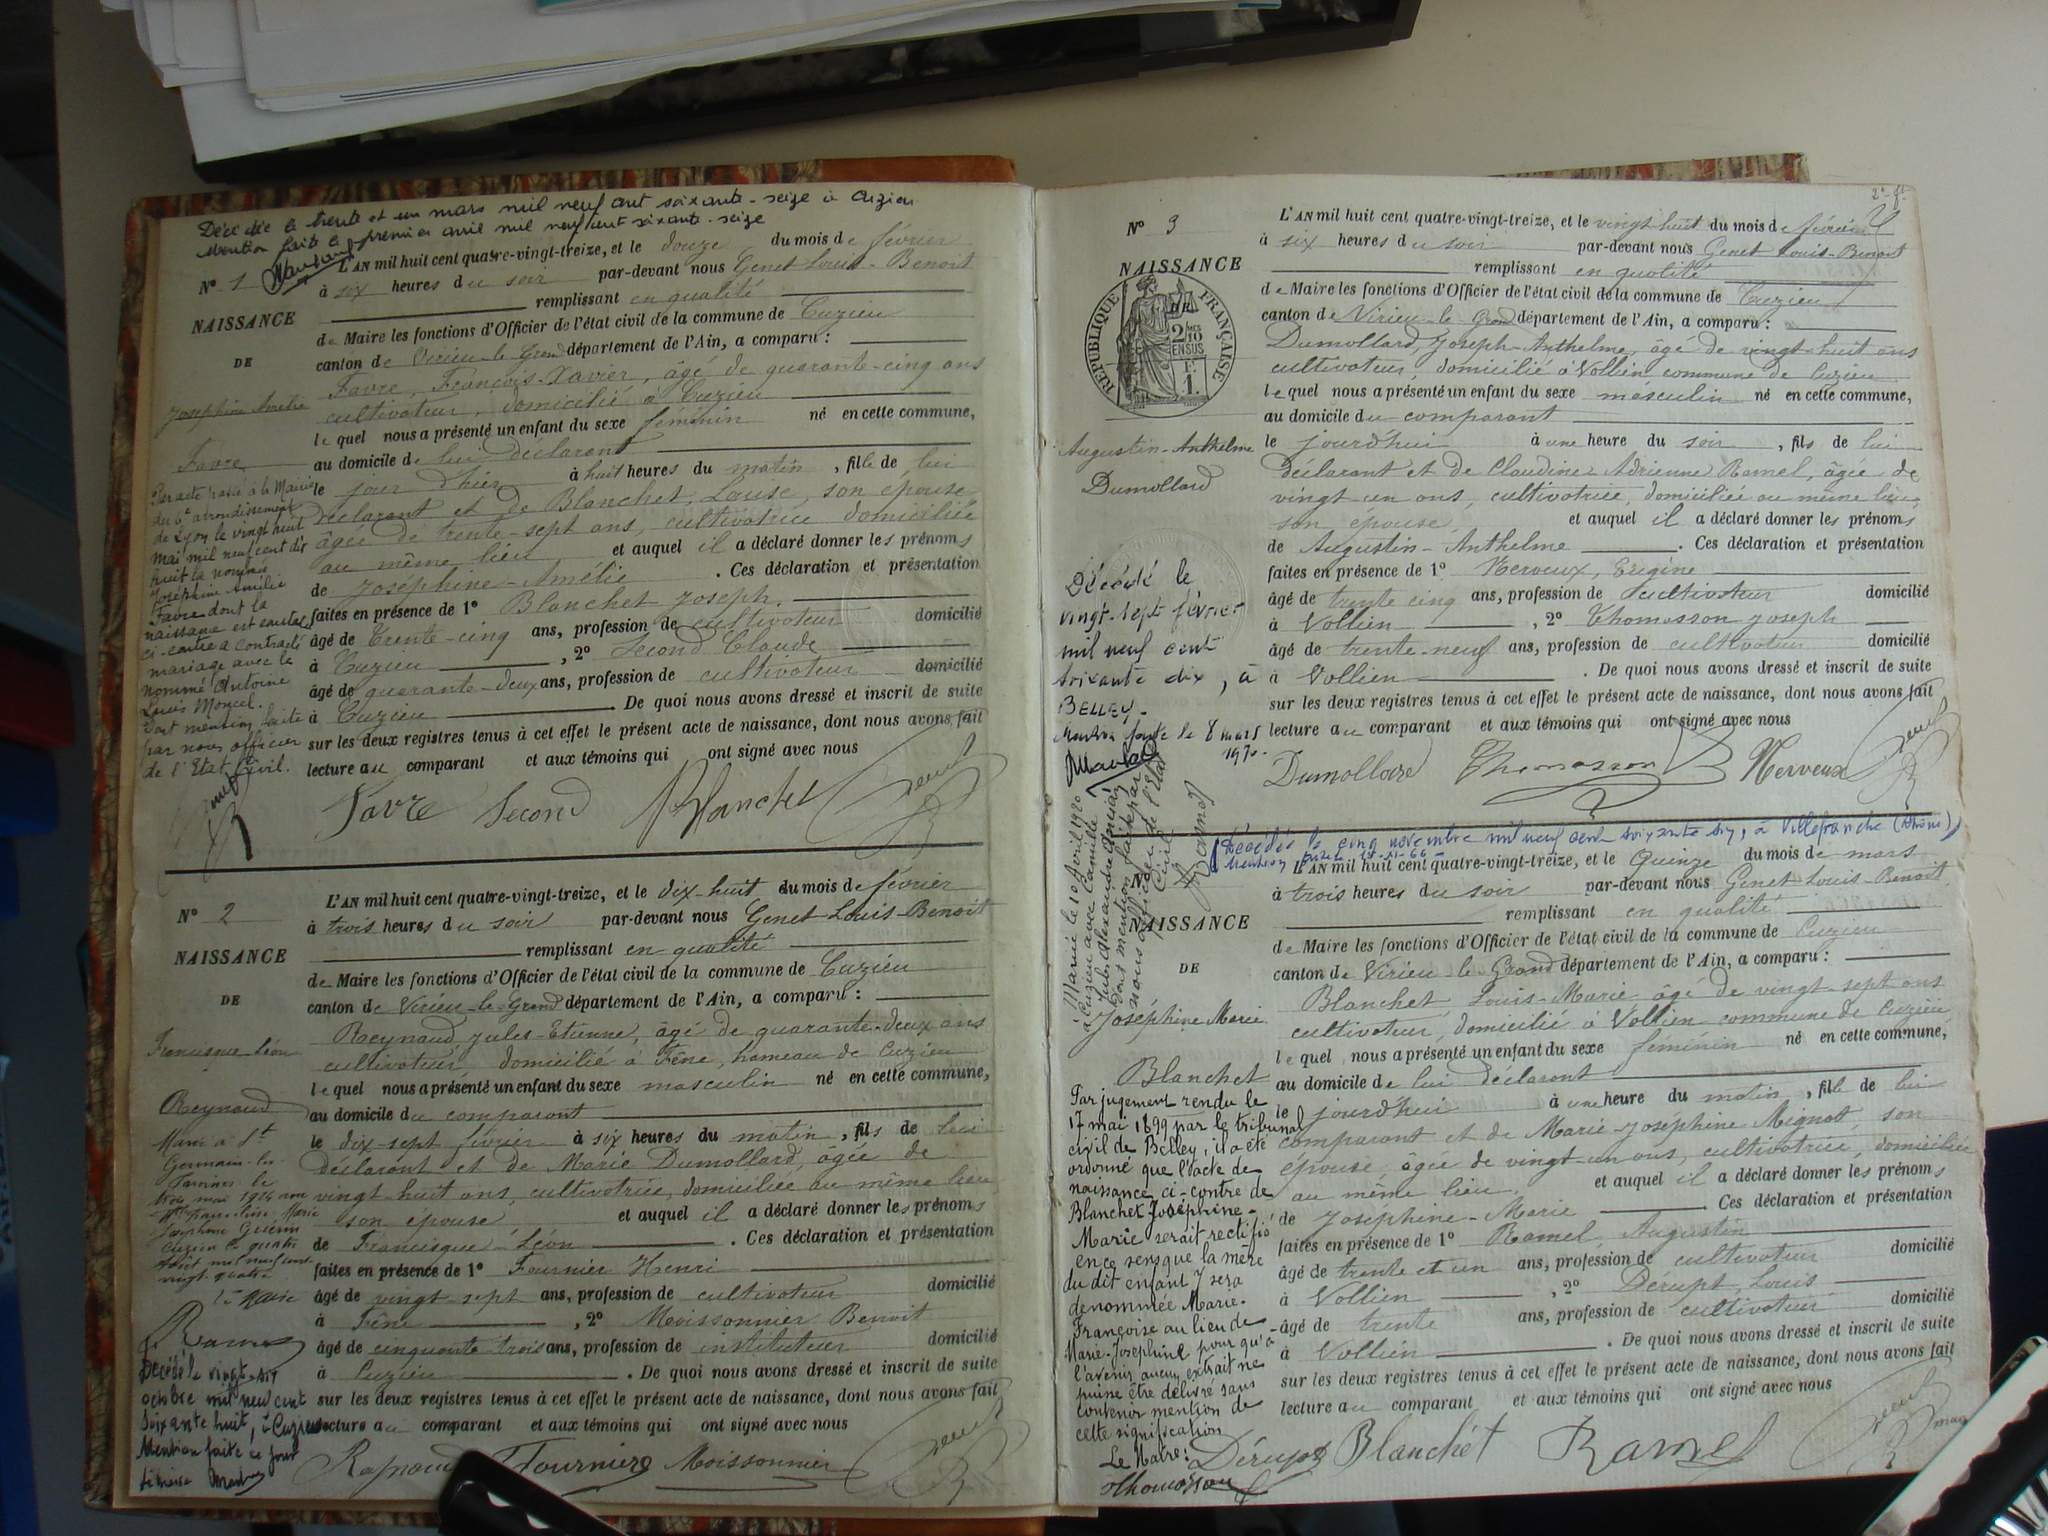 Décédée le trente et un mars mil neuf cent soixante-seize à Cuzieu
Mention faite le premier avril mil neuf cent soixante-seize
N° 1
NAISSANCE
DE
Joséphine Amélie
Favre
Par acte passé à la Mairie
du 6e arrondissement
de Lyon le vingt huit
mai mil neuf cent dix
huit la nommée
Joséphine Amélie
Favre dont la
naissance est constatée
ci-contre a contracté
mariage avec le
nommé Antoine
Louis Moncel.
Dont mention faite
par nous officier
de l'Etat Civil.
L'AN mil huit cent quatre-vingt-treize, et le douze du mois de février
à six heures du soir par-devant nous Genet Louis-Benoit
remplissant en qualité
de Maire les fonctions d'Officier de l'état civil de la commune de Cuzieu
canton de Virieu-le-Grand département de l'Ain, a comparu :
Favre, François-Xavier, âgé de quarante-cinq ans
cultivateur, domicilié à Cuzieu
lequel nous a présenté un enfant du sexe féminin né en cette commune,
au domicile de lui déclarant
le jour d'hier à huit heures du matin, fille de lui
déclarant et de Blanchet, Louise, son épouse
âgée de trente-sept ans, cultivatrice domiciliée
au même lieu et auquel il a déclaré donner les prénoms
de Joséphine-Amélie . Ces déclaration et présentation
faites en présence de 1° Blanchet Joseph,
âgé de trente-cinq ans, profession de cultivateur domicilié
à Cuzieu , 2° Second Claude
âgé de quarante-deux ans, profession de cultivateur domicilié
à Cuzieu . De quoi nous avons dressé et inscrit de suite
sur les deux registres tenus à cet effet le présent acte de naissance, dont nous avons fait
lecture au comparant et aux témoins qui ont signé avec nous
Favre Second Blanchet Genet
N° 2
NAISSANCE
DE
Francisque-Léon
Reynaud
Marié à St
Germain-les-
Paroisses le
trois mai 1924
Cuzieu le quatre
Août mil neuf cent
vingt quatre
Le Maire
Ramel
Décédé le vingt-six
octobre mil neuf cent
soixante huit, à Cuzieu
Mention faite ce jour
L'AN mil huit cent quatre-vingt-treize, et le dix-huit du mois de février
à trois heures du soir par-devant nous Genet Louis-Benoit
remplissant en qualité
de Maire les fonctions d'Officier de l'état civil de la commune de Cuzieu
canton de Virieu-le-Grand département de l'Ain, a comparu :
Reynaud Jules-Etienne, âgé de quarante-deux ans
cultivateur, domicilié à Fêne, hameau de Cuzieu
lequel nous a présenté un enfant du sexe masculin né en cette commune,
au domicile du comparant
le dix-sept février à six heures du matin, fils de lui
déclarant et de Marie Dumollard, âgée de
vingt-huit ans, cultivatrice, domiciliée au même lieu
son épouse et auquel il a déclaré donner les prénoms
de Francisque-Léon . Ces déclaration et présentation
faites en présence de 1° Fournier Henri
âgé de vingt-sept ans, profession de cultivateur domicilié
à Fêne , 2° Moissonnier Benoit
âgé de cinquante trois ans, profession de instituteur domicilié
à Cuzieu . De quoi nous avons dressé et inscrit de suite
sur les deux registres tenus à cet effet le présent acte de naissance, dont nous avons fait
lecture au comparant et aux témoins qui ont signé avec nous
Reynaud Fournier Moissonnier Genet
2e ft
N° 3
NAISSANCE
DE
RÉPUBLIQUE FRANÇAISE
2/10
EN SUS
1 F.
Augustin-Anthelme
Dumollard
Décédé le
vingt-sept février
mil neuf cent
soixante dix, à
BELLEY.
Mention faite le 8 mars
1970.
L'AN mil huit cent quatre-vingt-treize, et le vingt huit du mois de février
à six heures du soir par-devant nous Genet Louis-Benoit
remplissant en qualité
de Maire les fonctions d'Officier de l'état civil de la commune de Cuzieu
canton de Virieu-le-Grand département de l'Ain, a comparu :
Dumollard, Joseph-Anthelme, âgé de vingt-huit ans
cultivateur domicilié à Vollien commune de Cuzieu
lequel nous a présenté un enfant du sexe masculin né en cette commune,
au domicile du comparant
le jourd'hui à une heure du soir , fils de lui
déclarant et de Claudine Adrienne Ramel, âgée de
vingt-un ans, cultivatrice, domiciliée au même lieu,
son épouse et auquel il a déclaré donner les prénoms
de Augustin-Anthelme . Ces déclaration et présentation
faites en présence de 1° Nerveux, Eugène
âgé de trente cinq ans, profession de cultivateur domicilié
à Vollien , 2° Thomasson Joseph
âgé de trente-neuf ans, profession de cultivateur domicilié
à Vollien . De quoi nous avons dressé et inscrit de suite
sur les deux registres tenus à cet effet le présent acte de naissance, dont nous avons fait
lecture au comparant et aux témoins qui ont signé avec nous
Dumollard Thomasson Nerveux Genet
Décédée le cinq novembre mil neuf cent soixante six, à Villefranche (Rhône)
Mention faite le
NAISSANCE
DE
Joséphine Marie
Blanchet
Mariée le 10 Avril 1920
à Cuzieu avec Camille
dont mention faite par
nous officier de l'état
civil
Par jugement rendu le
17 mai 1899 par le tribunal
civil de Belley, il a été
ordonné que l'acte de
naissance ci-contre de
Blanchet Joséphine-
Marie serait rectifié
en ce sens que la mère
du dit enfant y sera
dénommée Marie-
Françoise au lieu de
Marie-Joséphine pour qu'à
l'avenir aucun extrait ne
puisse être délivré sans
contenir mention de
cette signification
Le Maire :
Thomasson
L'AN mil huit cent quatre-vingt-treize, et le Quinze du mois de mars
à trois heures du soir par-devant nous Genet Louis-Benoit
remplissant en qualité
de Maire les fonctions d'Officier de l'état civil de la commune de Cuzieu
canton de Virieu-le-Grand département de l'Ain, a comparu :
Blanchet, Louis-Marie âgé de vingt-sept ans
cultivateur, domicilié à Vollien commune de Cuzieu
lequel nous a présenté un enfant du sexe féminin né en cette commune,
au domicile de lui déclarant
le jourd'hui à une heure du matin , fille de lui
comparant et de Marie-Joséphine Mignot, son
épouse, âgée de vingt-un ans, cultivatrice, domiciliée
au même lieu, et auquel il a déclaré donner les prénoms
de Joséphine-Marie . Ces déclaration et présentation
faites en présence de 1° Ramel, Augustin
âgé de trente et un ans, profession de cultivateur domicilié
à Vollien , 2° Derupt, Louis
âgé de trente ans, profession de cultivateur domicilié
à Vollien . De quoi nous avons dressé et inscrit de suite
sur les deux registres tenus à cet effet le présent acte de naissance, dont nous avons fait
lecture au comparant et aux témoins qui ont signé avec nous
Dérupt Blanchet Ramel Genet